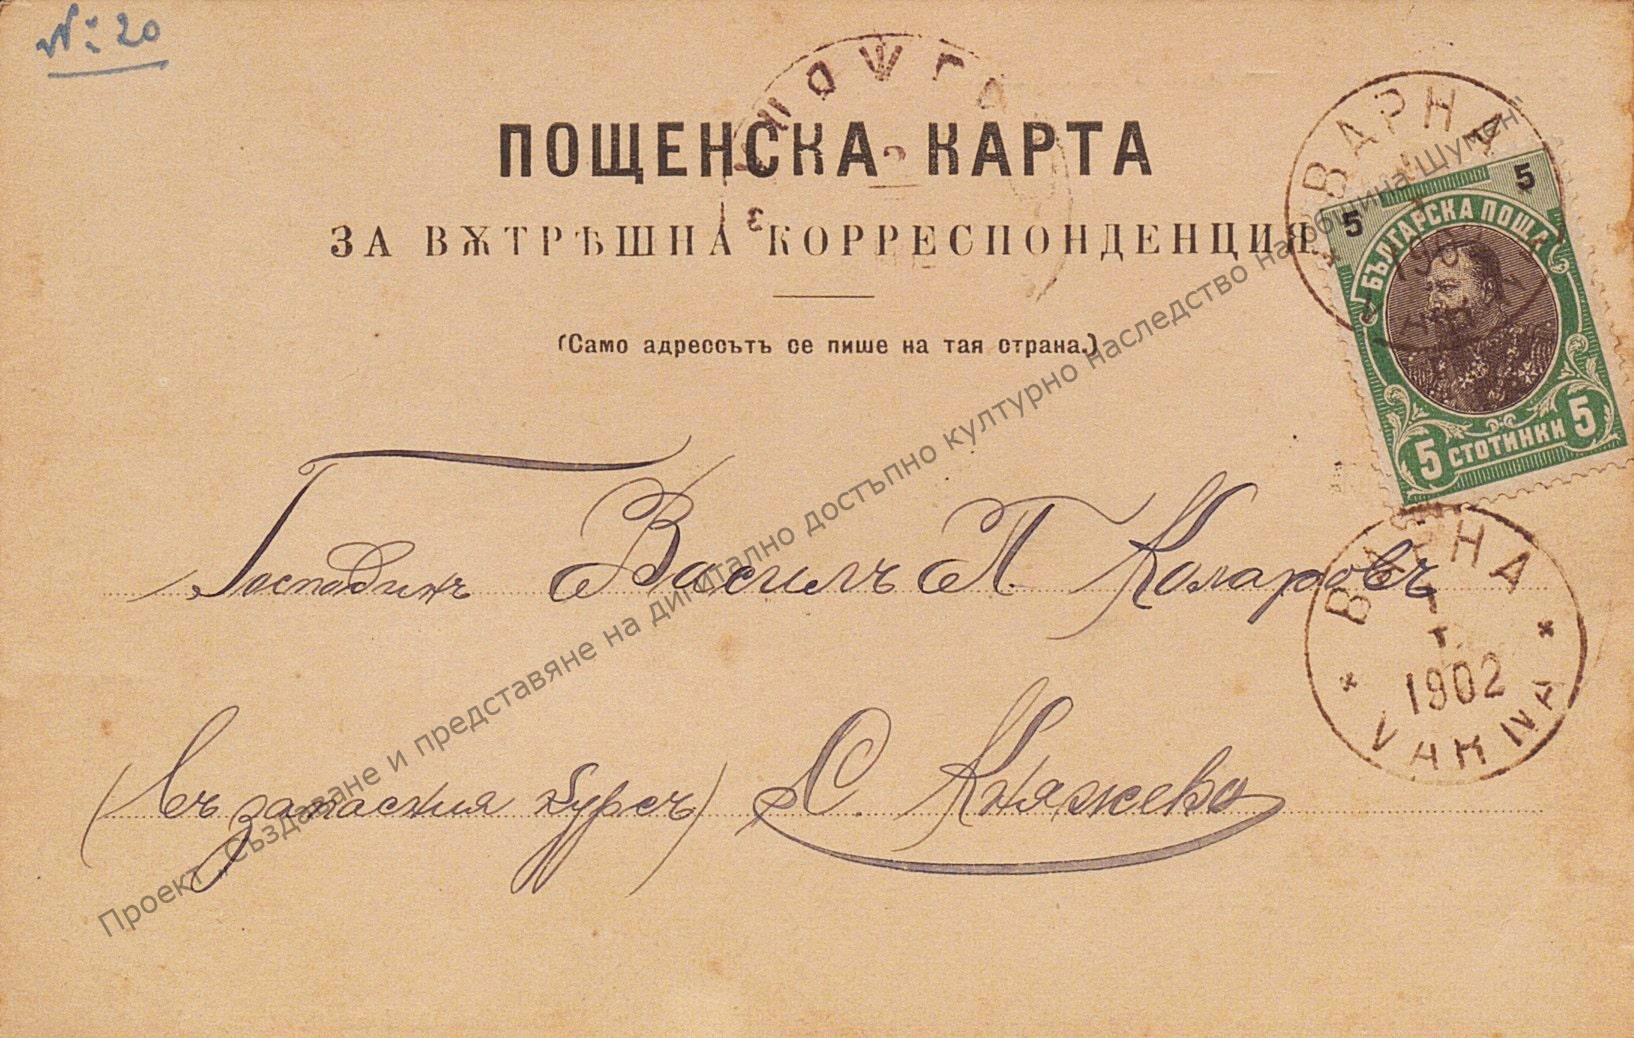 №: 20
ПОЩЕНСКА КАРТА
ЗА ВѪТРѢШНА КОРРЕСПОНДЕНЦИЯ
(Само адрессътъ се пише на тая страна.)
ВАРНА
5 5
БЪЛГАРСКА ПОЩА
5 СТОТИНКИ 5
Господинъ Василъ П. Коларовъ
ВАРНА
1902
VARNA
(въ запасния курсъ) С. Княжево
Проект „Създаване и представяне на дигитално достъпно културно наследство на община Шумен“